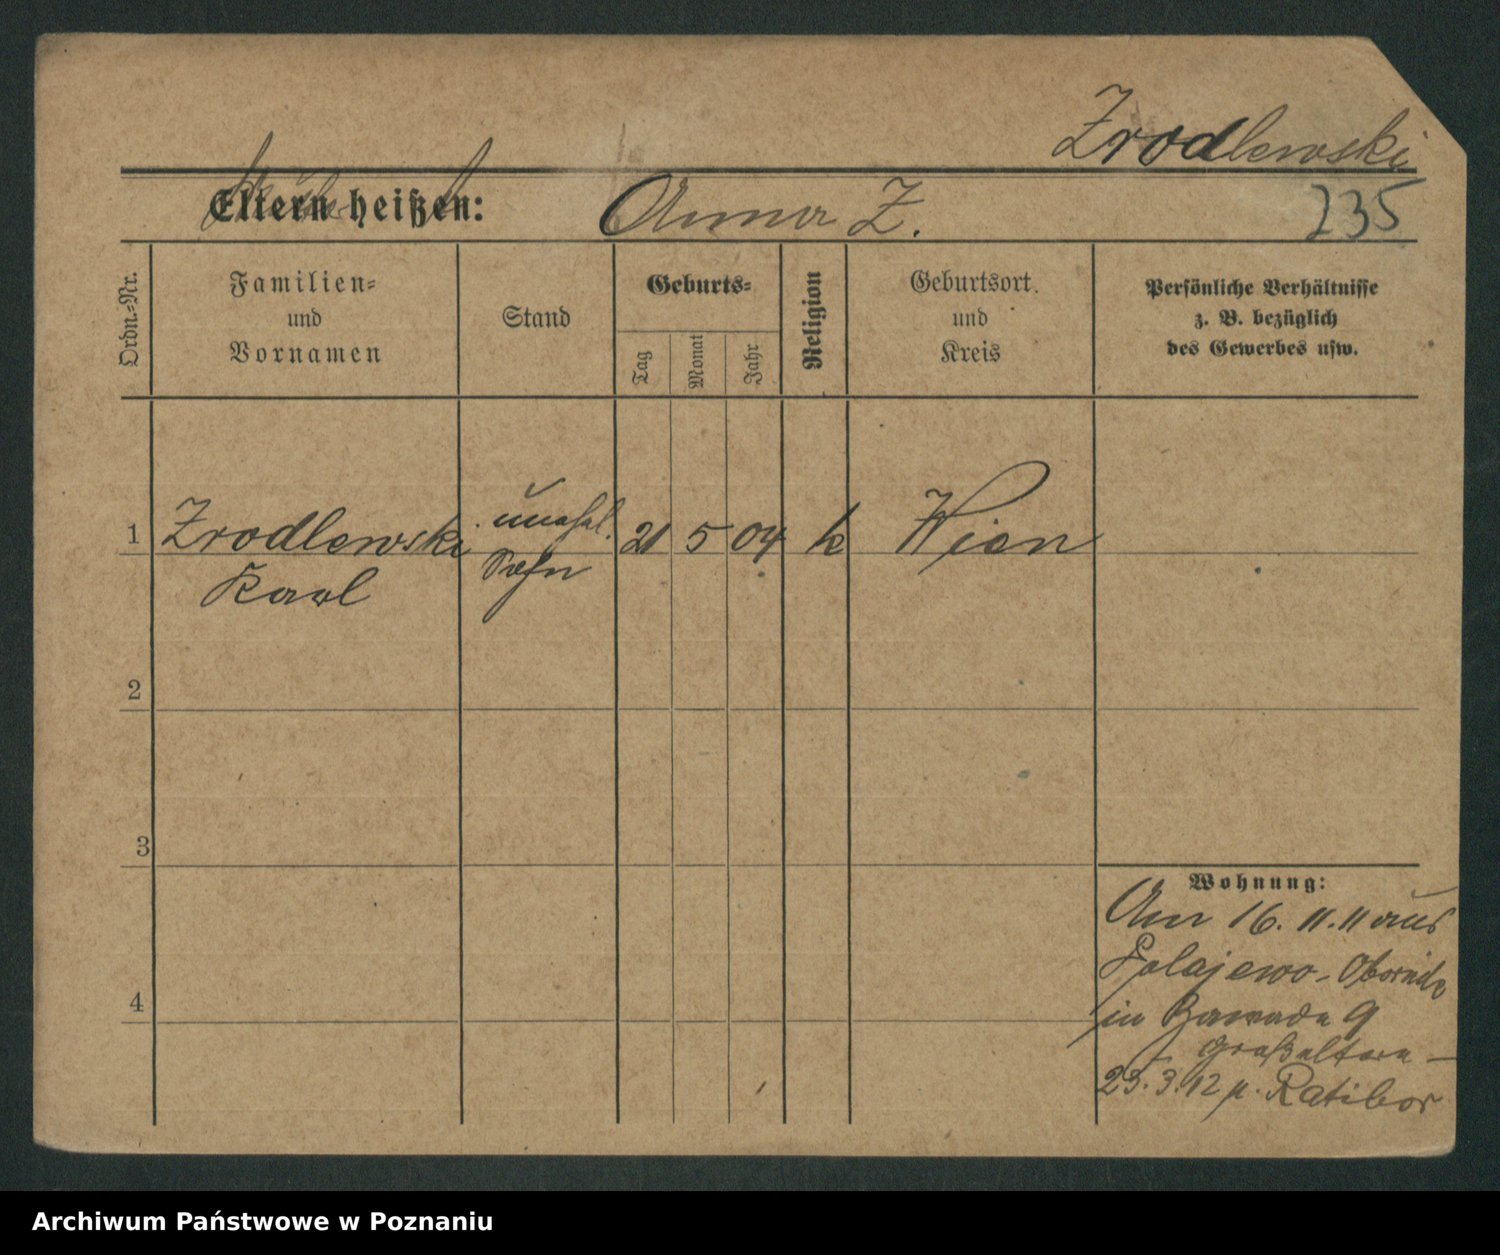 Zrodlewski
Eltern heißen: Anna Z. 235
Ordn.-Nr.
Familien-
und
Vornamen
Stand
Geburts-
Tag
Monat
Jahr
Religion
Geburtsort
und
Kreis
Persönliche Verhältnisse
z. B. bezüglich
des Gewerbes usw.
1 Zrodlewski unehel. 21 5 04 k Wien
Karl Sohn
2
3
4
Wohnung:
Am 16. 11. 11 aus
Polajewo - Obornik
in Zawade 9
Großeltern -
23. 3. 12 n. Ratibor
Archiwum Państwowe w Poznaniu